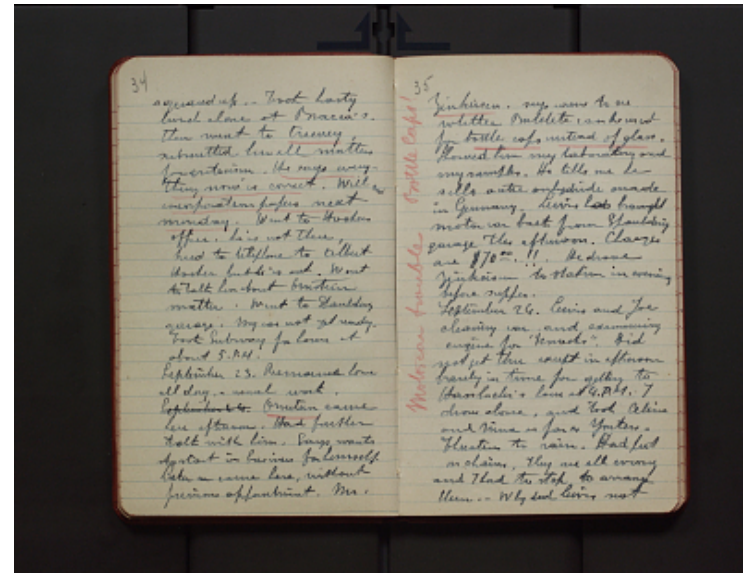 34
agreed up. - Took hasty
lunch alone at
Then went to
submitted him all matters
for criticism. He says every-
thing now is correct. Will
incorporation papers next
monday. Went to Hookers
office, he is not there,
tried to telephone to Elbert
Hooker but he is out. Want
to talk him about
matter. Went to Spaulding
garage. My car not yet ready.
Took Subway for home at
about 5.P.M.
September 23. Remained home
all day, - usual work.
September 24. came
here afternoon. Had further
talk with him. Says wants
to start in business for himself
Later on came here, without
previous appointment. Mr.
35
Zinkeisen. says wants to see
whether Oxalite can be used
for bottle caps instead of glass.
Showed him my laboratory and
my samples. He tells me he
sells made
in Germany. Lewis has brought
motorcar back from Spaulding
garage this afternoon. Charges
are $70.00.!! He drove
Zinkeisen to station in evening
before supper.
September 26. Lewis and Joe
cleaning car and examining
engine for "knocks". Did
not get thru except in afternoon
barely in time for getting to
home at 4.P.M. I
drove alone, and took Celine
and Nina as far as Yonkers.
Threatens to rain. Had put
on chains. They are all wrong
and I had to stop to arrange
them. - Why did Lewis not
Motorcar trouble Bottle Caps!